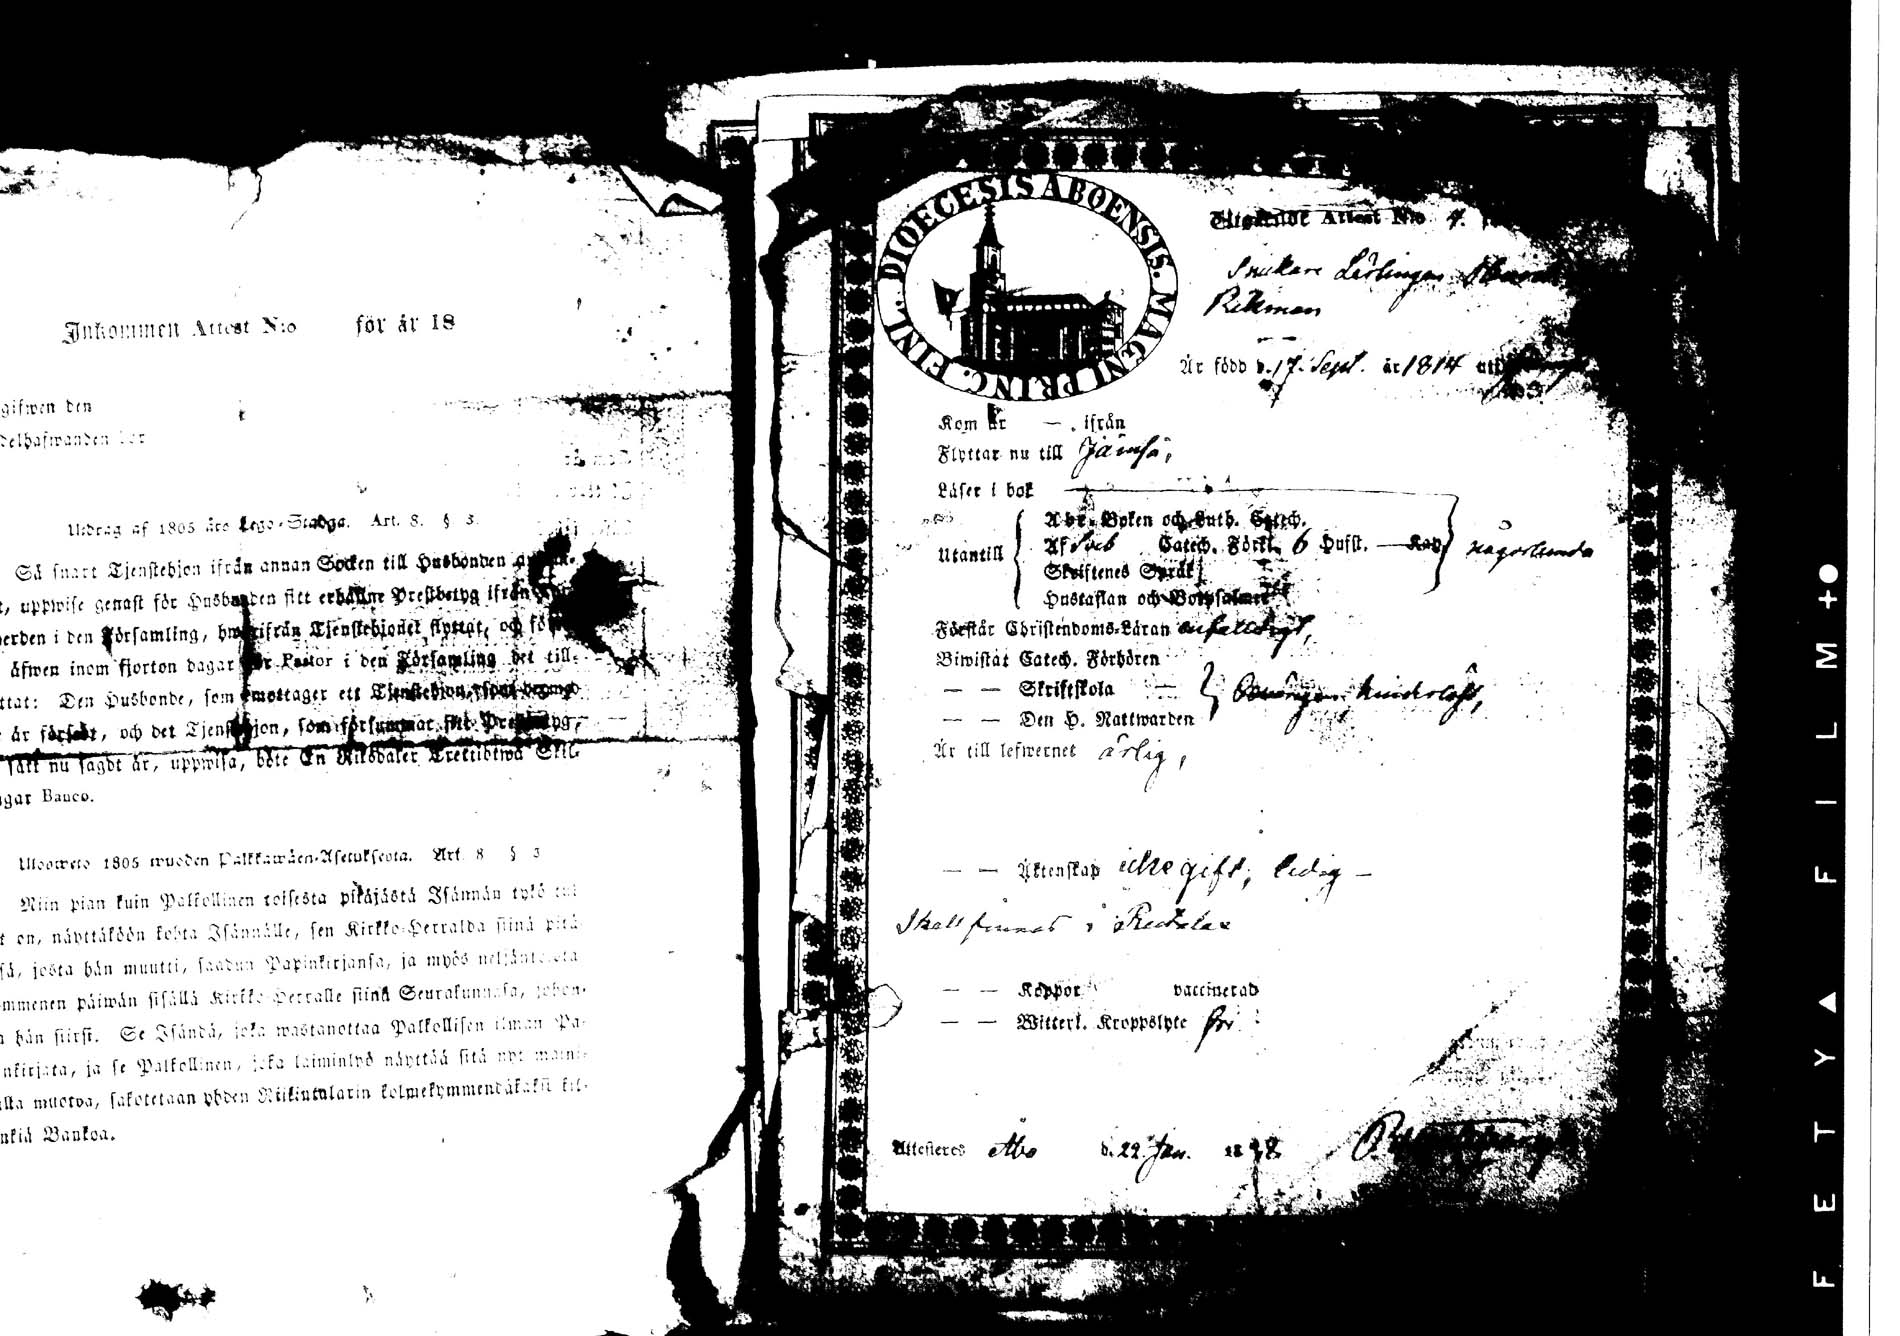 Inkommen Attest N:o för år 18
gifwen den
delhafwanden
Utdrag af 1805 års Lego-Stadga. Art. 8. § 3.
Så snart Tjenstehjon ifrån annan Socken till Husbonden
uppwise genast för Husbonden sitt erhållne Prestbetyg ifrån
herden i den Församling, hwarifrån Tjenstehjonet flyttat, och
äfwen inom fjorton dagar för Pastor i den Församling det till-
ttat: Den Husbonde, som emottager ett Tjenstehjon, som
är försedt, och det Tjenstehjon, som försummar sitt Prestbetyg,
sätt nu sagdt är, uppwisa, böte En Riksdaler Trettiotwå Skil-
ngar Banco.
Ulosweto 1805 wuoden Palkkawäen-Asetuksesta. Art. 8 § 3
Niin pian kuin Palkollinen toisesta pitäjästä Isännän tykö
t on, näyttäköön kohta Isännälle, sen Kirkko-Herralda siinä pitä
sä, josta hän muutti, saadun Papinkirjansa, ja myös neljäntoista
mmenen päiwän sisällä Kirkko-Herralle siinä Seurakunnasa, johon-
a hän siirsi. Se Isändä, joka wastanottaa Palkollisen ilman Pa-
nkirjata, ja se Palkollinen, joka laiminlyö näyttää sitä nyt maini-
alla muotoa, sakotetaan yhden Riikintalarin kolmekymmendäkaksi kil-
nkiä Bankoa.
DIOECESIS ABOENSIS. MAGNI PRINC. FINL.
Utgående Attest N:o 4.
Snickare Lärlingen
Rikman
Är född d. 17. Sept. år 1814 uti
Kom år — ifrån
Flyttar nu till Jämsä,
Läser i bok
Utantill
Abc-Boken och Luth. Catech.
Af Sveb Catech. Förkl. 6 Hufst. — Kap.
någorlunda
Skriftenes Språk
Hustaflan och Botpsalmer
Förstår Christendoms-Läran enfaldigt,
Biwistat Catech. Förhören
— — Skriftskola —
— — Den H. Nattwarden
hinderlöst,
Är till lefwernet ärlig,
— — Äktenskap icke gift, ledig —
Skall finnas i
— — Koppor vaccinerad
— — Witterl. Kroppslyte fri
Attesteras Åbo d. 22. Jan. 18
FETYA ▲ FILM +●